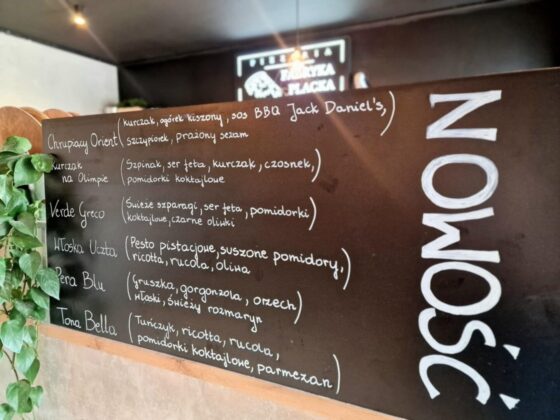 PIEKARNIA
FABRYKA
PLACKA
NOWOŚĆ
Chrupiący Orient (kurczak, ogórek kiszony, sos BBQ Jack Daniel's,
szczypiorek, prażony sezam)
Kurczak
na Olimpie (Szpinak, ser feta, kurczak, czosnek,
pomidorki koktajlowe)
Verde Greco (Świeże szparagi, ser feta, pomidorki
koktajlowe, czarne oliwki)
Włoska Uczta (Pesto pistacjowe, suszone pomidory,
ricotta, rucola, oliwa)
Pera Blu (Gruszka, gorgonzola, orzech
włoski, świeży rozmaryn)
Tona Bella (Tuńczyk, ricotta, rucola,
pomidorki koktajlowe, parmezan)